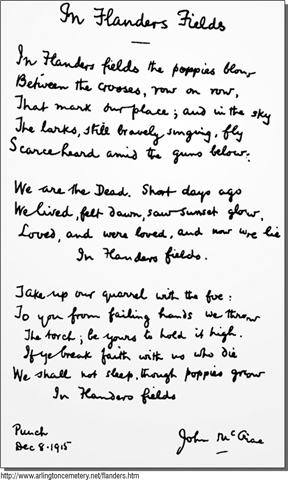 In Flanders Fields
In Flanders fields the poppies blow
Between the crosses, row on row,
That mark our place; and in the sky
The larks, still bravely singing, fly
Scarce heard amid the guns below.
We are the Dead. Short days ago
We lived, felt dawn, saw sunset glow,
Loved, and were loved, and now we lie
In Flanders fields.
Take up our quarrel with the foe:
To you from failing hands we throw
The torch; be yours to hold it high.
If ye break faith with us who die
We shall not sleep, though poppies grow
In Flanders fields
Punch
Dec 8·1915
John McCrae
http://www.arlingtoncemetery.net/flanders.htm